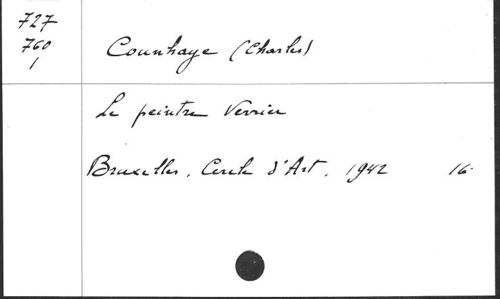 727
760
1
Counhaye (Charles)
Le peintre Verrier
Bruxelles, Cercle d'Art, 1942 16.